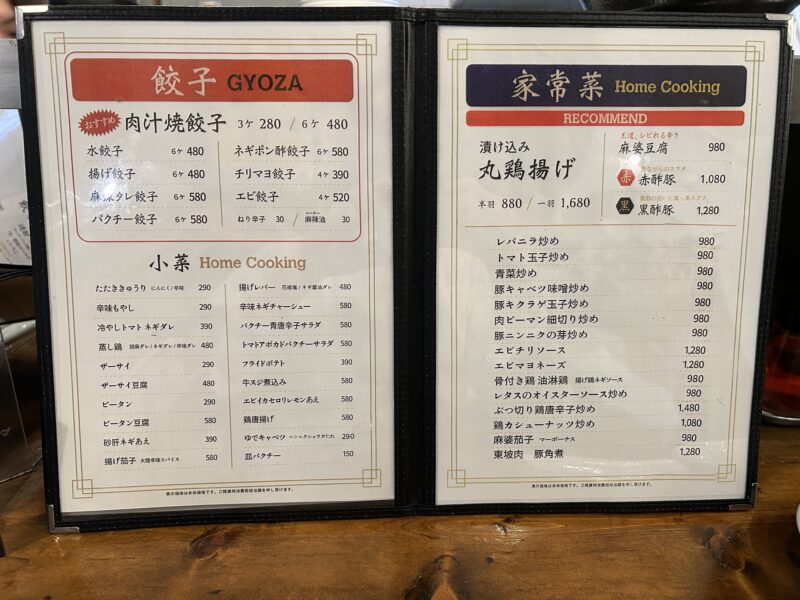 餃子 GYOZA
おすすめ 肉汁焼餃子 3ケ 280 / 6ケ 480
水餃子 6ケ 480
揚げ餃子 6ケ 480
麻辣タレ餃子 6ケ 580
パクチー餃子 6ケ 580
ネギポン酢餃子 6ケ 580
チリマヨ餃子 4ケ 390
エビ餃子 4ケ 520
ねり辛子 30 / 麻辣油 マーラー 30
小菜 Home Cooking
たたききゅうり にんにく/辛味 290
辛味もやし 290
冷やしトマト ネギダレ 390
蒸し鶏 胡麻ダレ/ネギダレ/辛味ダレ 480
ザーサイ 290
ザーサイ豆腐 480
ピータン 290
ピータン豆腐 580
砂肝ネギあえ 390
揚げ茄子 大陸辛味スパイス 580
揚げレバー 花椒塩/ネギ醤油ダレ 480
辛味ネギチャーシュー 580
パクチー青唐辛子サラダ 580
トマトアボカドパクチーサラダ 580
フライドポテト 390
牛スジ煮込み 580
エビイカセロリレモンあえ 580
鶏唐揚げ 580
ゆでキャベツ ニンニクショウガだれ 290
皿パクチー 150
表示価格は本体価格です。ご精算時消費税相当額を申し受けます。
家常菜 Home Cooking
RECOMMEND
漬け込み
丸鶏揚げ
半羽 880 / 一羽 1,680
王道、シビれる辛さ
麻婆豆腐 980
赤 赤酢豚 1,080
黒 黒酢豚 1,280
レバニラ炒め 980
トマト玉子炒め 980
青菜炒め 980
豚キャベツ味噌炒め 980
豚キクラゲ玉子炒め 980
肉ピーマン細切り炒め 980
豚ニンニクの芽炒め 980
エビチリソース 1,280
エビマヨネーズ 1,280
骨付き鶏 油淋鶏 揚げ鶏ネギソース 980
レタスのオイスターソース炒め 980
ぶつ切り鶏唐辛子炒め 1,480
鶏カシューナッツ炒め 1,080
麻婆茄子 マーボーナス 980
東坡肉 豚角煮 1,280
表示価格は本体価格です。ご精算時消費税相当額を申し受けます。